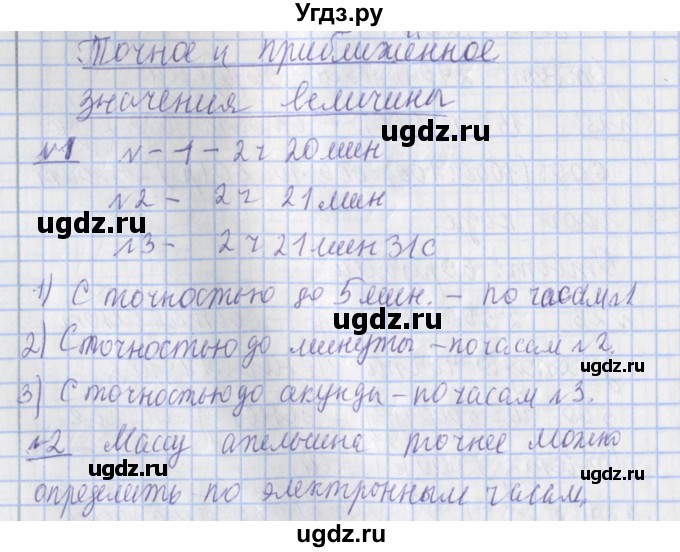 Угдз.ру
Точное и приближённое
значения величины
ugdz.ru
№1 № - 1 - 2 ч 20 мин
ugdz.ru
№2 - 2 ч 21 мин
ugdz.ru
№3 - 2 ч 21 мин 31 с
ugdz.ru
1) С точностью до 5 мин. - по часам №1
ugdz.ru
2) С точностью до минуты - по часам №2.
ugdz.ru
3) С точностью до акунды - по часам №3.
ugdz.ru
№2 Массу апельсина точнее можно
ugdz.ru
определить по электронным часам,
ugdz.ru
ugdz.ru